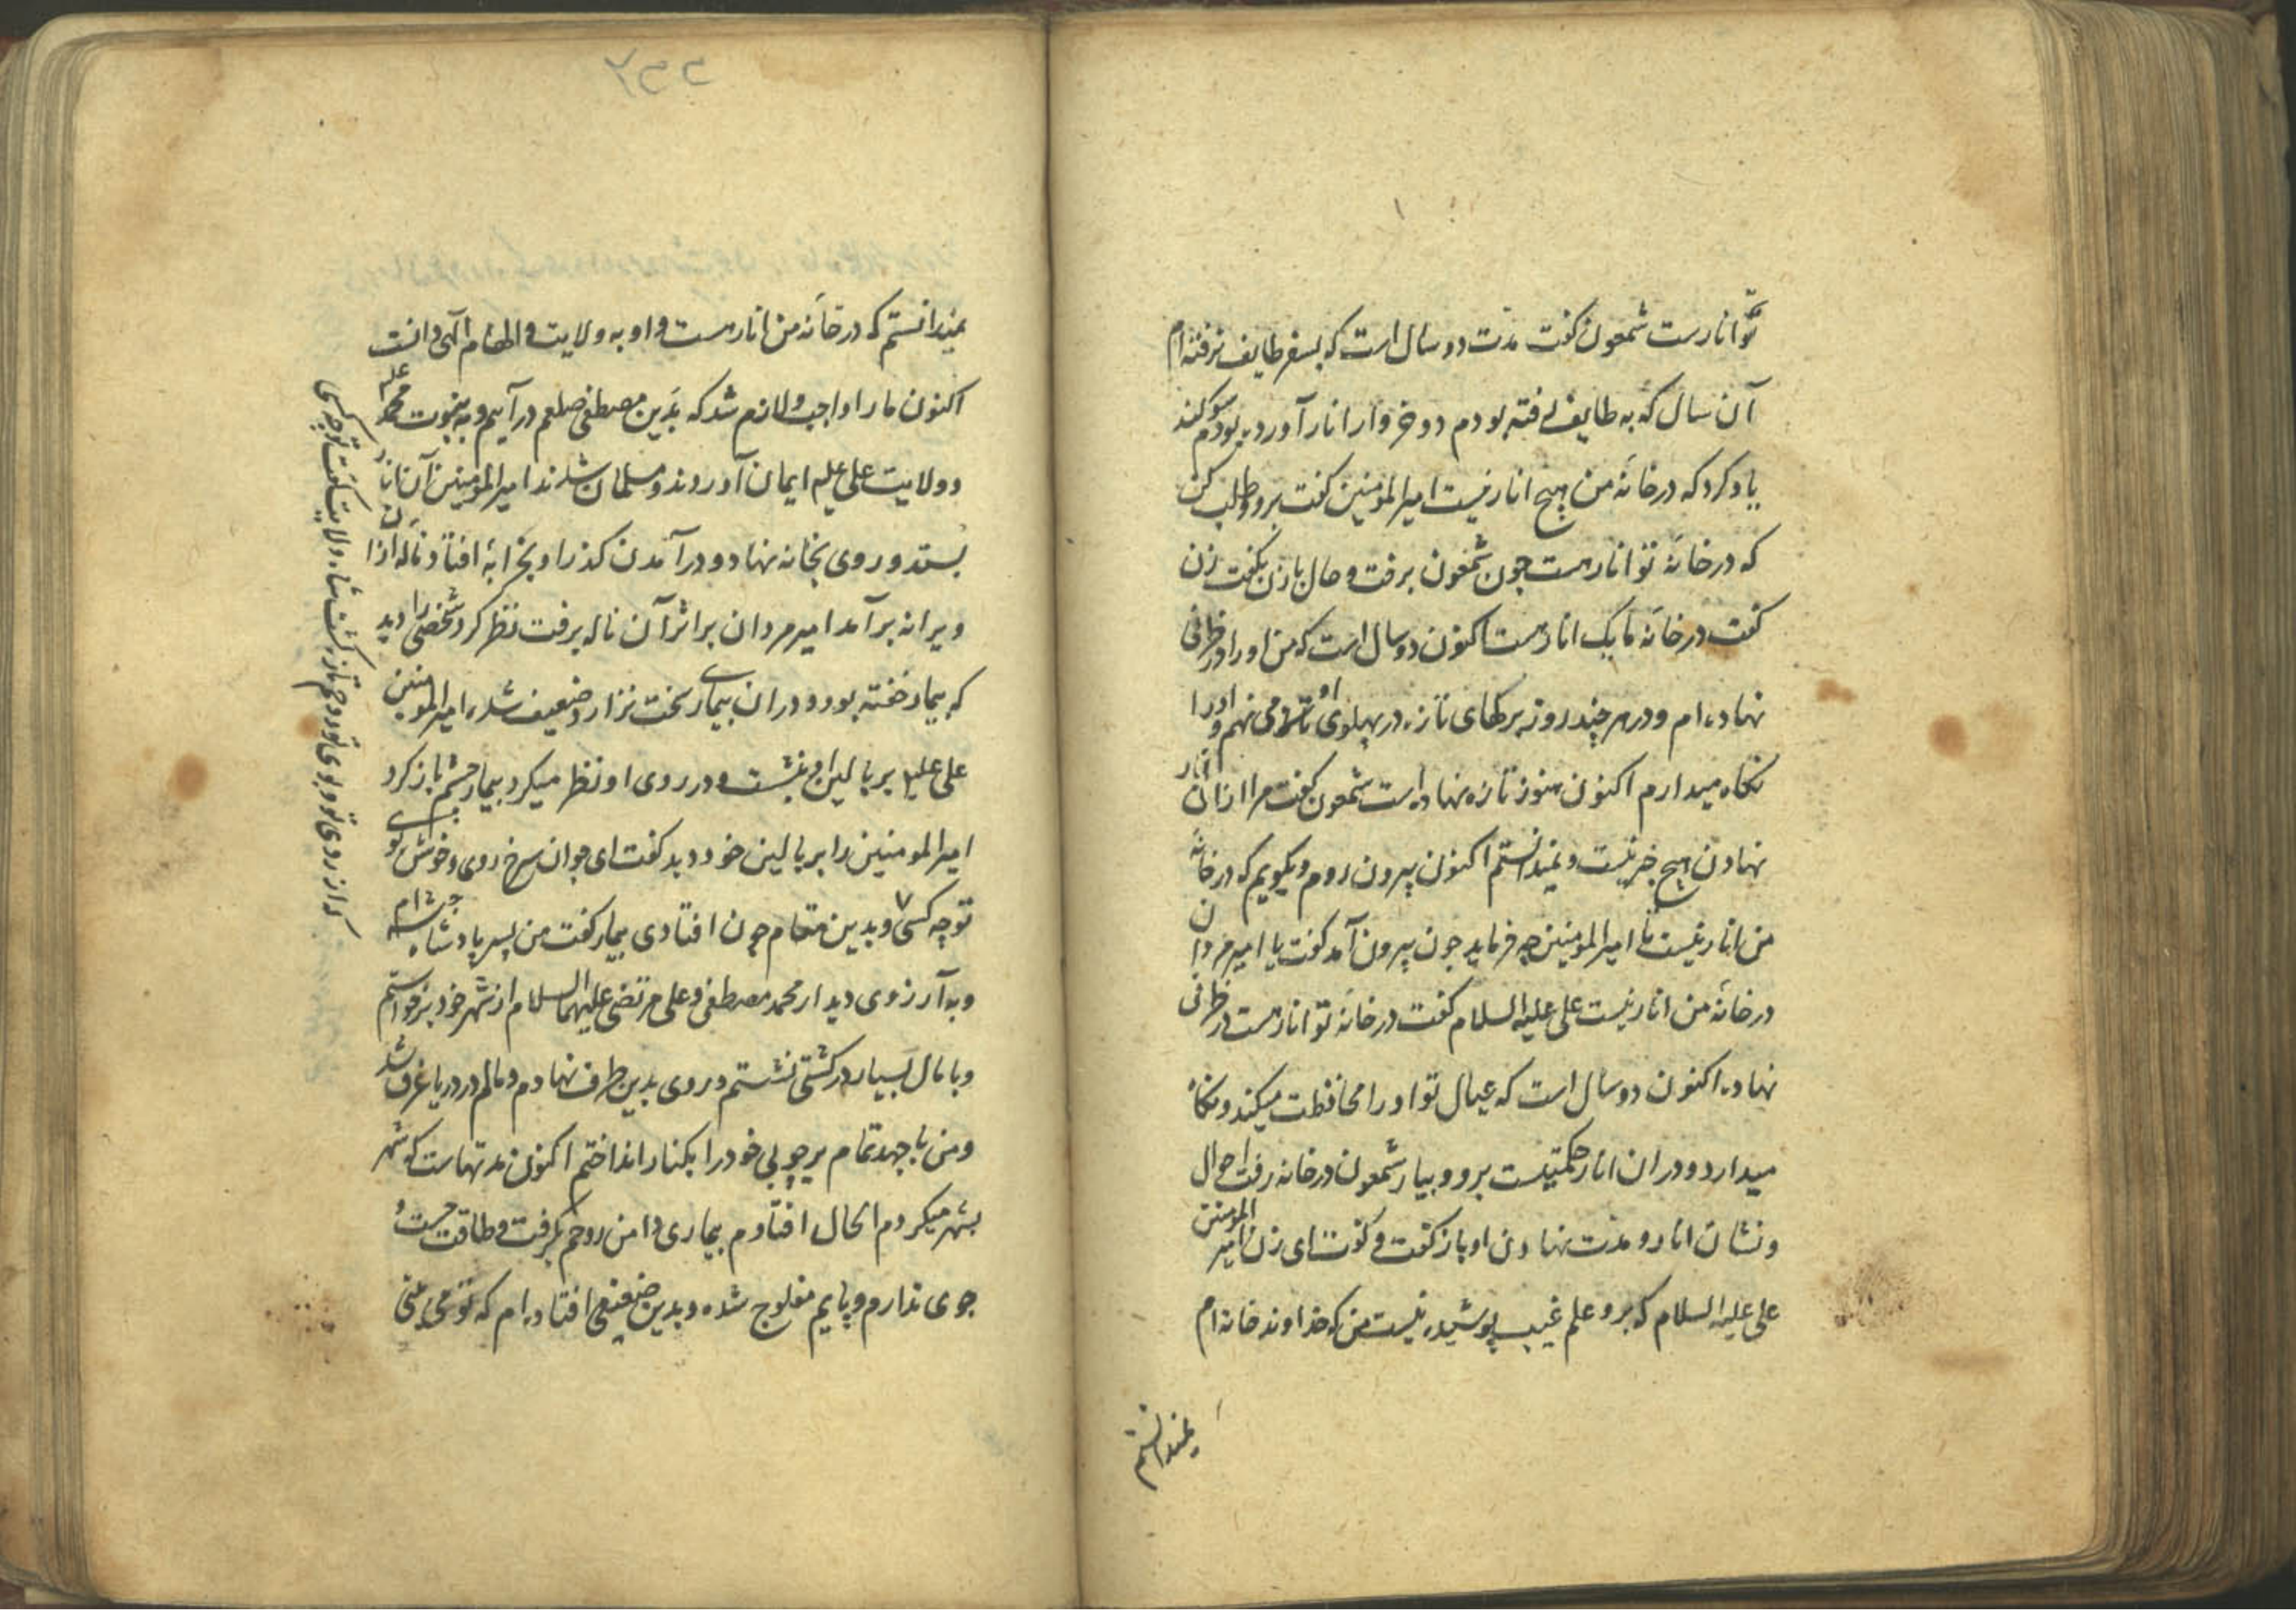 تو انارست شمعون کفت مدت دو سال است که بسفر طایف نرفته ام
آن سال که به طایف رفته بودم دو خروار انار آورده بودم سوکند
یاد کرد که در خانه من هیچ انار نیست امیرالمومنین کفت برو و طلب کن
که در خانه تو انار هست چون شمعون برفت و حال با زن بکفت زن
کفت در خانه ما یک انار هست اکنون دو سال است که من او را در ظرفی
نهاده ام و در هر چند روزه برکهای تازه در پهلوی او می نهم و او را
نکاه میدارم اکنون هنوز تازه نهاده است شمعون کفت مرا از ان انار
نهادن هیچ خبر نیست و نمیدانستم اکنون بیرون روم و بکویم که در خانه
من انار نیست تا امیرالمومنین چه فرماید چون بیرون آمد کفت یا امیر مردان
در خانه من انار نیست علی علیه السلام کفت در خانه تو انار هست در ظرفی
نهاده اکنون دو سال است که عیال تو او را محافظت میکند و نکاه
میدارد و در ان انار حکمتیست برو و بیار شمعون در خانه رفت احوال
و نشان انار و مدت نهادن او باز کفت و کفت ای زن امیر المومنین
علی علیه السلام که برو علم غیب پوشیده نیست من که خداوند خانه ام
نمیدانستم
۲۳۲
نمیدانستم که در خانه من انار هست و او به ولایت و الهام الهی دانست
اکنون ما را واجب و لازم شد که بدین مصطفی صلعم در آییم و به نبوت محمد علیه
و ولایت علی علیه ایمان آوردند و مسلمان شدند امیرالمومنین آن انار
بستد و روی بخانه نهاد و در آمدن کذر او بخرابه افتاد و ناله از ان
ویرانه برآمد امیر مردان بر اثر آن ناله برفت نظر کرد شخصی را دید
که بیمار خفته بود و در ان بیماری سخت نزار و ضعیف شده امیرالمومنین
علی علیه بر بالین او بنشست و در روی او نظر میکرد بیمار چشم باز کرد
امیرالمومنین را بر بالین خود دید کفت ای جوان سرخ روی و خوش بوی
تو چه کسی و بدین مقام چون افتادی بیمار کفت من پسر پادشاه
و به آرزوی دیدار محمد مصطفی و علی مرتضی علیهما السلام از شهر خود برخواستم
و با مال بسیار در کشتی نشستم و روی بدین طرف نهادم و مالم در دریا غرق شد
و من با جهد تمام بر چوبی خود را بکنار انداختم اکنون مدتهاست که شهر
بشهر میکردم الحال افتادم بیماری دامن روحم بکرفت و طاقت جست و
جوی ندارم و پایم مفلوج شده و بدین ضعیفی افتاده ام که تو می بینی
که از روی تو و بوی تو روحم تازه کشت شاه ولایت کفت تو چه کسی